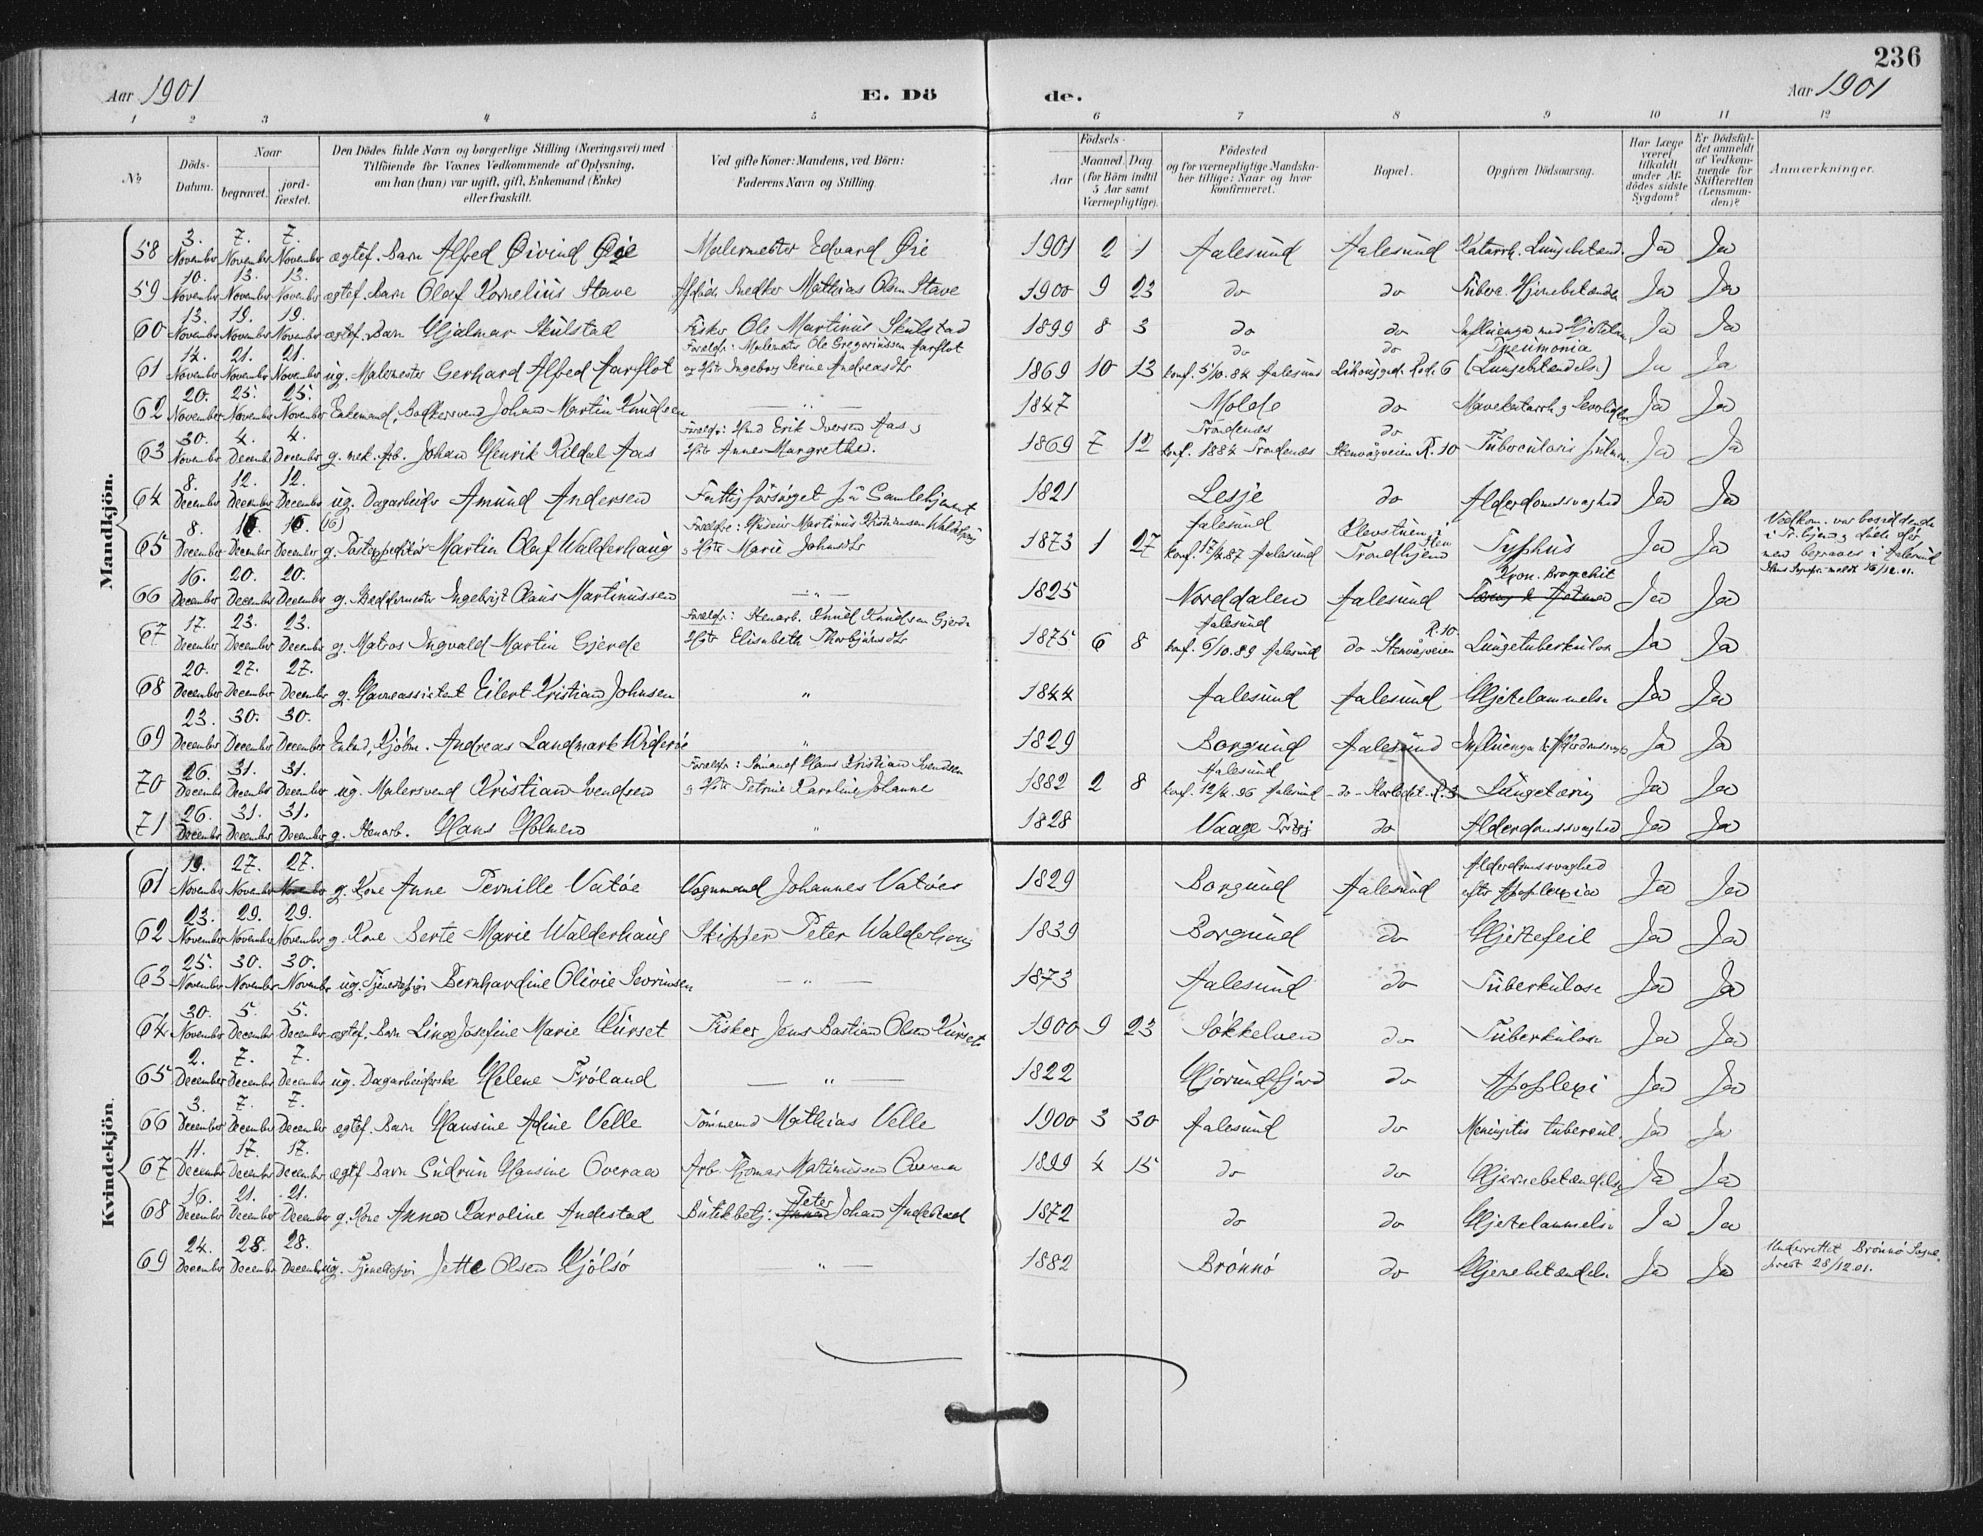 236
Aar 1901 E. Dö de. Aar 1901
1 2 3 4 5 6 7 8 9 10 11 12
No Döds-Datum. Naar begravet. jord-fæstet. Den Dödes fulde Navn og borgerlige Stilling (Næringsvei) med Tilföiende for Voxnes Vedkommende af Oplysning, om han (hun) var ugift, gift, Enkemand (Enke) eller fraskilt. Ved gifte Koner: Mandens, ved Börn: Faderens Navn og Stilling. Födsels- Aar Maaned. Dag (for Börn indtil 5 Aar samt Værnepligtige). Födested og for værnepligtige Mandskaber tillige: Naar og hvor konfirmeret. Bopæl. Opgiven Dödsaarsag. Har Læge været tilkaldt under Afdödes sidste Sygdom? Er Dödsfaldet anmeldt af Vedkommende for Skifteretten (Lensmanden)? Anmærkninger.
Mandkjön.
58 3. November 7. November 7. November ægtef. Barn Alfred Øivind Øie Malermester Edvard Øie 1901 2 1 Aalesund Aalesund Katarrh. Lungebetænd. Ja Ja
59 10. November 13. November 13. November ægtef. Barn Olaf Kornelius Stave Snedker Mathias Olsen Stave 1900 9 23 do do Hjernebetændelse Ja Ja
60 13. November 19. November 19. November ægtef. Barn Hjalmar Skulstad Fisker Ole Martinus Skulstad 1899 8 3 do do Influenza med Ja Ja
61 14. November 21. November 21. November ug. Malermester Gerhard Alfred Aarflot Forældr: Malermester Ole Gregoriussen Aarflot og Hstr Ingeborg Serine Andreasdtr 1869 10 13 do konf. 5/10.84 Aalesund do Rode 6 Pneumonia (Lungebetændelse) Ja Ja
62 20. November 25. November 25. November Enkemand, Johan Martin Knudsen — " — 1847 Molde do Mavekatarrh Ja Ja
63 30. November 4. December 4. December g. mek. Arb. Johan Henrik Kildal Aas Forældr: Erik Iversen Aas og Hstr Anne Margrethe. 1869 7 12 Trondenæs konf. 1884 Trondenæs do Stenvågveien R. 10 Tuberculosis pulmon. Ja Ja
64 8. December 12. December 12. December ug. Dagarbeider Amund Andersen Fattigforsørget på Gamlehjemmet 1821 Lesje do Alderdomssvaghed Ja Ja
65 8. December 16. December 16. December (16) g. Postexpeditør Martin Olaf Walderhaug Forældre: Martinus Kristiansen Walderhaug og Hstr Marie Johnsdtr 1873 1 27 Aalesund konf. 17/4.87 Aalesund Trondhjem Typhus Ja Ja Vedkom. var bosiddende i Tr.hjem og døde der men begraves i Aalesund 16/12.01.
66 16. December 20. December 20. December g. Bødkermester Ingebrigt Olaus Martinussen — " — 1825 Norddalen Aalesund Kron. Bronchit Ja Ja
67 17. December 23. December 23. December g. Matros Ingvald Martin Gjerde Forældr: Stenarb. Knud Knudsen Gjerde Hstr Elisabeth Thorbjørnsdtr 1875 6 8 Aalesund konf. 6/10.89 Aalesund do Stenvågveien R. 10. Lungetuberkulose Ja Ja
68 20. December 27. December 27. December g. Havneassistent Eilert Kristian Johnsen " 1844 Aalesund Aalesund Hjertelammelse Ja Ja
69 23. December 30. December 30. December Enkmd, Kjøbm. Andreas Landmark Widerøe " 1829 Borgund Aalesund Influenza & Alderdomssvagh. Ja Ja
70 26. December 31. December 31. December ug. Malersvend Kristian Svendsen Forældr: Hans Kristian Svendsen og Hstr Petrine Karoline Johanne 1882 2 8 Aalesund konf. 12/4.96 Aalesund do R. 3 Lungetæring Ja Ja
71 26. December 31. December 31. December g. Stenarb. Hans Holmen " 1828 Vaage do Alderdomssvaghed Ja Ja
Kvindekjön.
61 19. November 27. November 27. November g. Kone Anne Pernille Vatøe Vognmand Johannes Vatøes 1829 Borgund Aalesund Alderdomssvaghed efter Apoplexia Ja Ja
62 23. November 29. November 29. November g. Kone Berte Marie Walderhaug Skipper Peter Walderhaug 1839 Borgund do Hjertefeil Ja Ja
63 25. November 30. November 30. November ug. Tjenestepige Bernhardine Olivie Sevrinsen — " — 1873 Aalesund do Tuberkulose Ja Ja
64 30. November 5. December 5. December ægtef. Barn Lina Josefine Marie Kurset Fisker Jens Bastian Olsen Kurset 1900 9 23 Søkkelven do Tuberkulose Ja Ja
65 2. December 7. December 7. December ug. Dagarbeiderske Helene Frøland — " — 1822 Hjørundfjord do Apoplexi Ja Ja
66 3. December 7. December 7. December ægtef. Barn Hansine Adine Velle Tømmermd Mathias Velle 1900 3 30 Aalesund do Meningitis tubercul. Ja Ja
67 11. December 17. December 17. December ægtef. Barn Gudrun Hansine Overaa Arb. Martinussen Overaa 1899 4 15 do do Hjernebetændelse Ja Ja
68 16. December 21. December 21. December g. Kone Anna Karoline Andestad Butikbetj: Peter Johan Andestad 1872 do do Hjertelammelse Ja Ja
69 24. December 28. December 28. December ug. Tjenestepige Jette Olsen Kjølsø " — 1882 Brønnø do Hjernebetændelse Ja Ja Underrettet Brønnø Sogneprest 28/12.01.